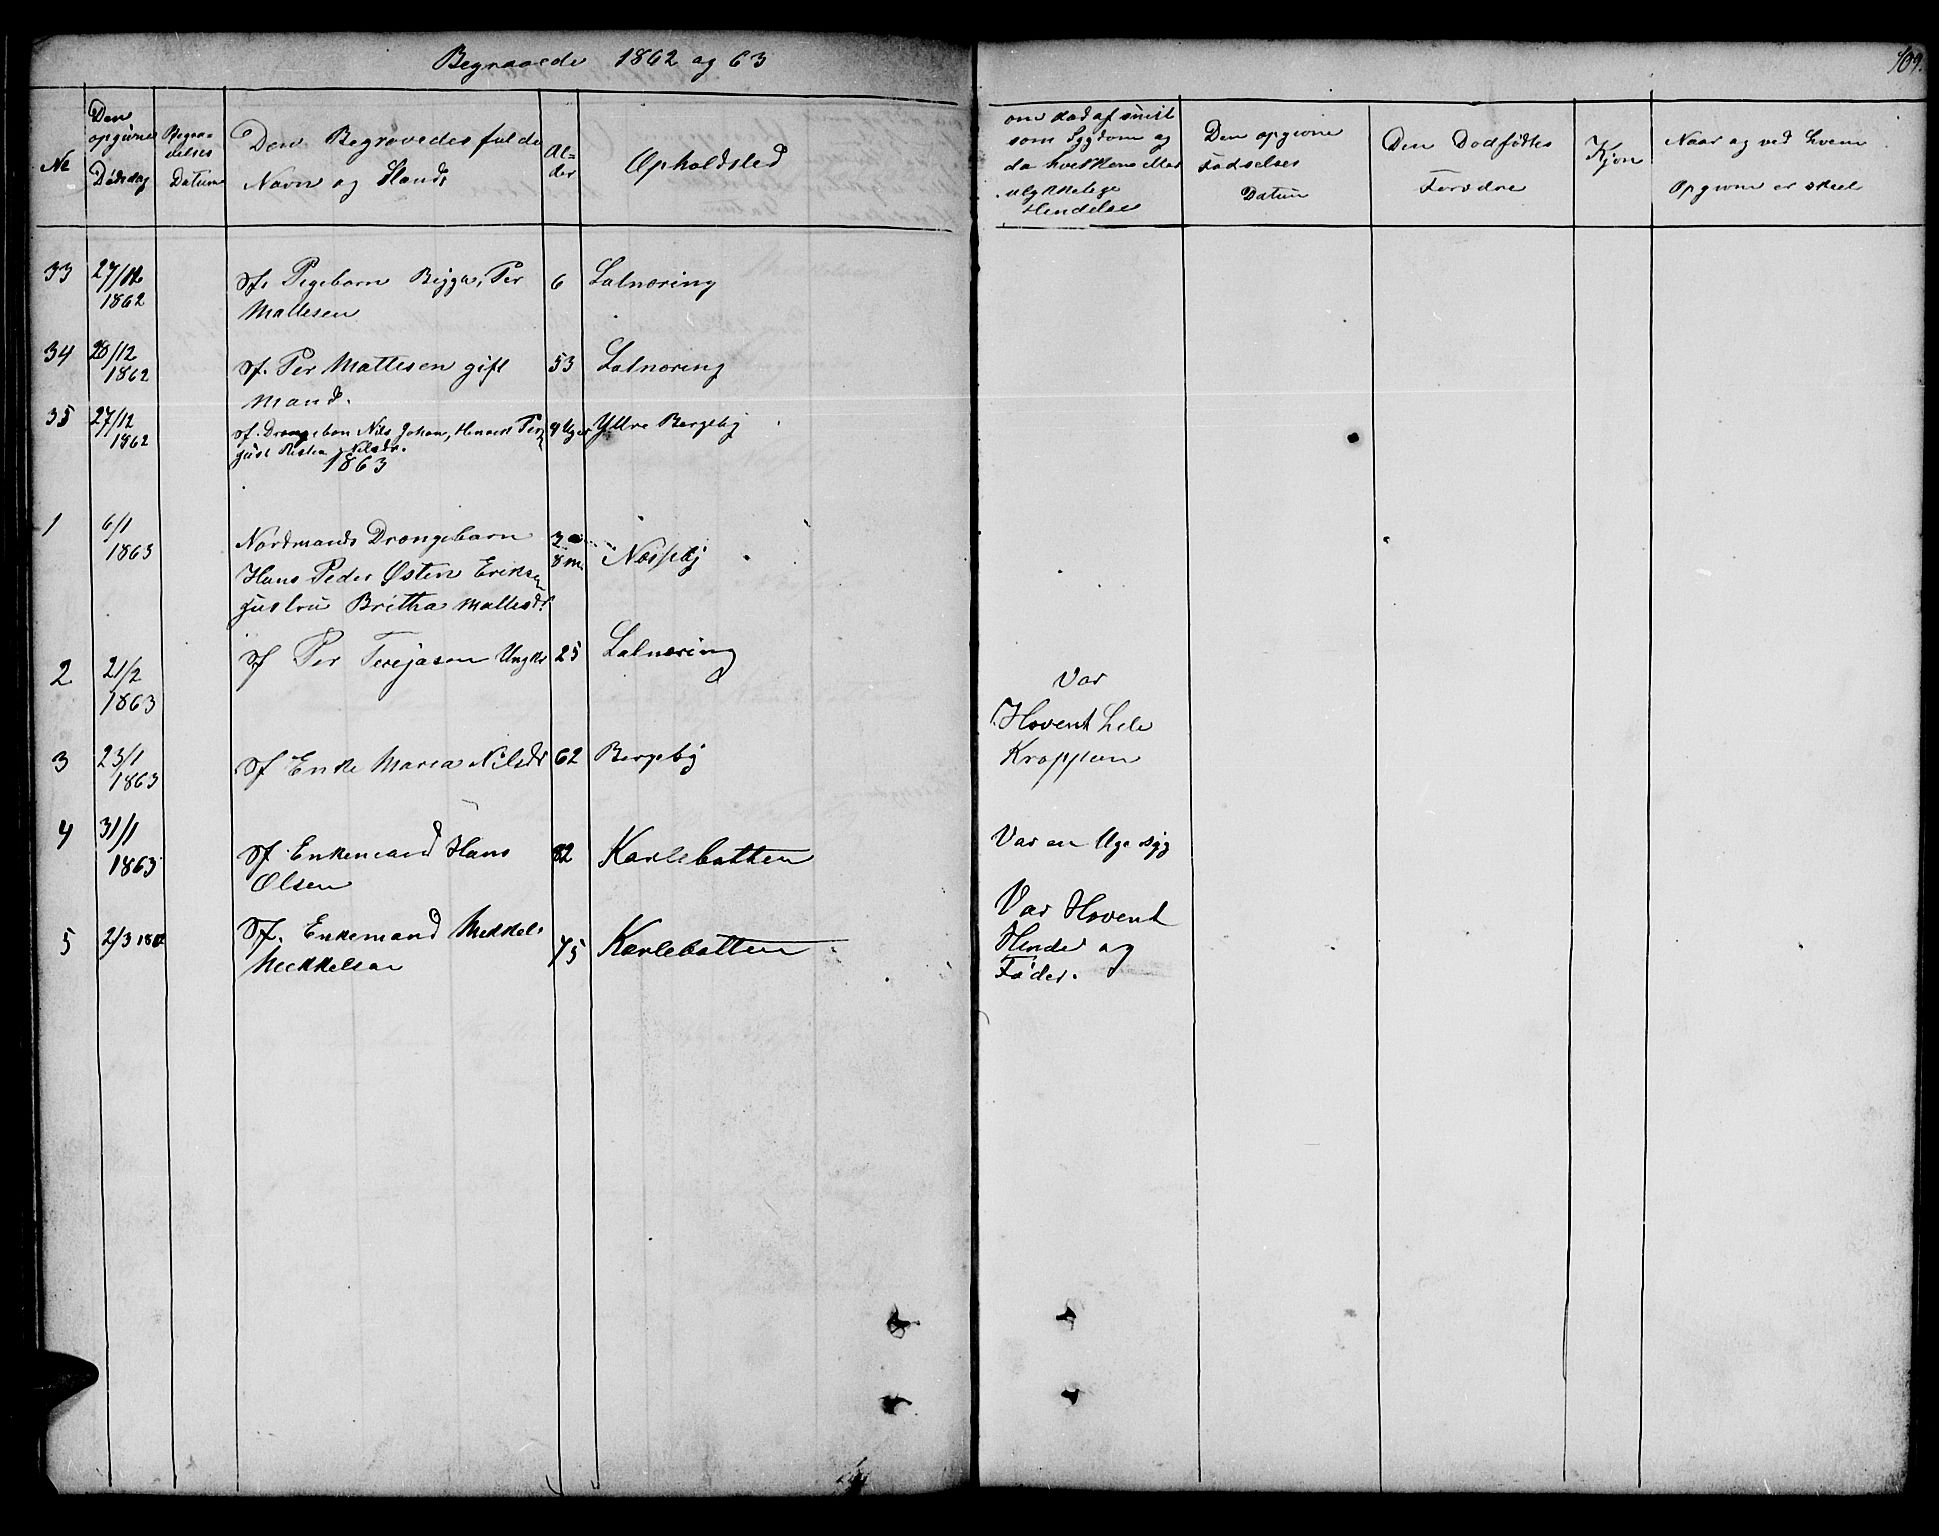 Begravede 1862 og 63
109.
No
Den opgivne Dødsdag
Begravelses Datum
Den Begravedes fulde Navn og Stand
Alder
Opholdsted
om død af smit
som Sygdom og
da hvilken eller
ulykkelige
Hendelse
Den opgivne
Fødselses
Datum
Den Dodfødtes
Forældre
Kjøn
Naar og ved hvem
Opgivne er skeet
33 27/12 1862 Sf. Pigebarn Bigga, Per 6 Lalnæring
Mattesen
34 20/12 1862 Sf. Per Mattesen gift 53 Lalnæring
Mand.
35 27/12 1862 sf. Drengebarn Nils Johan, Henrik Pers 4 Uger Yttre Bergeby
Nilsdr.
1863
1 6/1 1863 Nordmands Drengebarn 3 a 8 m. Næsseby
Hans Peder Østen Eriksen
Hustru Britha Mattesdr
2 21/2 1863 Sf Per Terejasen Ungkr 25 Lalnæring
Var
Hovent hele
Kroppen
3 23/1 1863 Sf Enke Maria Nilsdr 62 Bergeby
4 31/1 1863 Sf Enkemand Hans 82 Karlebotten Var en Uge syg
Olsen
5 2/3 1862 Sf. Enkemand Mikkel 75 Karlebotten
Mikkelsen
Var Hovent
Hender og
Føder.